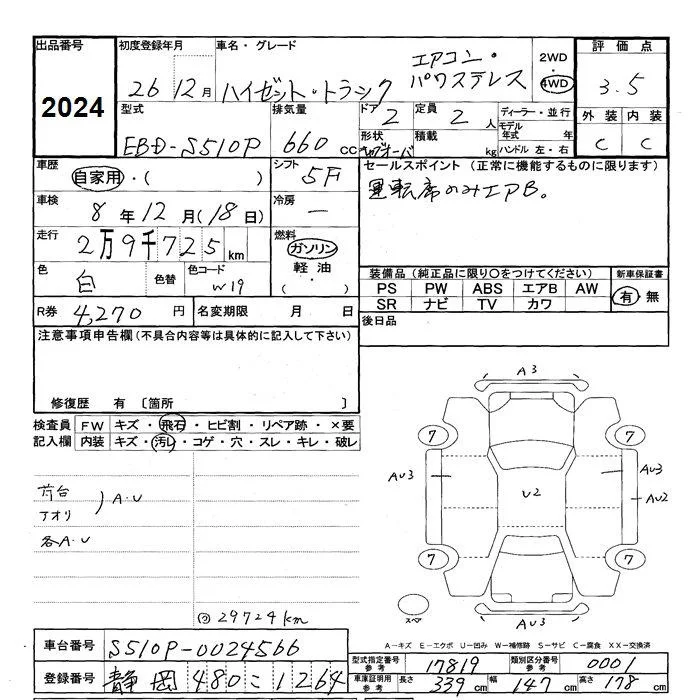 出品番号 初度登録年月 車名・グレード 評価点
2024
26 12月 ハイゼット・トラック エアコン・パワステレス 2WD 4WD 3.5
型式 排気量 ドア 定員 ディーラー・並行 外装 内装
EBD-S510P 660cc 2 2人 モデル年式 年 C C
形状 積載 kg ハンドル 左・右
車歴 自家用・( ) シフト 5F セールスポイント (正常に機能するものに限ります)
運転席のみエアB。
車検 8年12月(18日) 冷房 ー
走行 2万9千725km 燃料 ガソリン 軽油・( )
色 白 色替 色コード W19
装備品(純正品に限り○をつけてください) 新車保証書
PS PW ABS エアB AW 有・無
SR ナビ TV カワ
R券 4,270円 名変期限 月 日 後日品
注意事項申告欄(不具合内容等は具体的に記入して下さい)
修復歴 有 〔箇所 〕
検査員記入欄 FW キズ・飛石・ヒビ割・リペア跡・×要
内装 キズ・汚レ・コゲ・穴・スレ・キレ・破レ
荷台
アオリ A・U
各A・U
29724km
A3
7 7
AU3 U2 AU3
AU2
7 7
スペア AU3
A-キズ E-エクボ U-凹み W-補修跡 S-サビ C-腐食 XX-交換済
車台番号 S510P-0024566
型式指定番号 参考 17819 類別区分番号 参考 0001
登録番号 静岡 480 こ 1264
車庫証明用 参考 長さ 339cm 幅 147cm 高さ 178cm